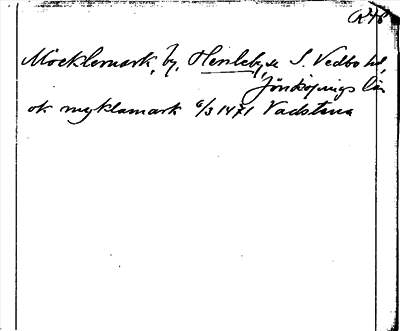 R48
Mocklemark, by, S. Vedbo hd,
Jönköpings län
ok myklamark 6/3 1471 Vadstena